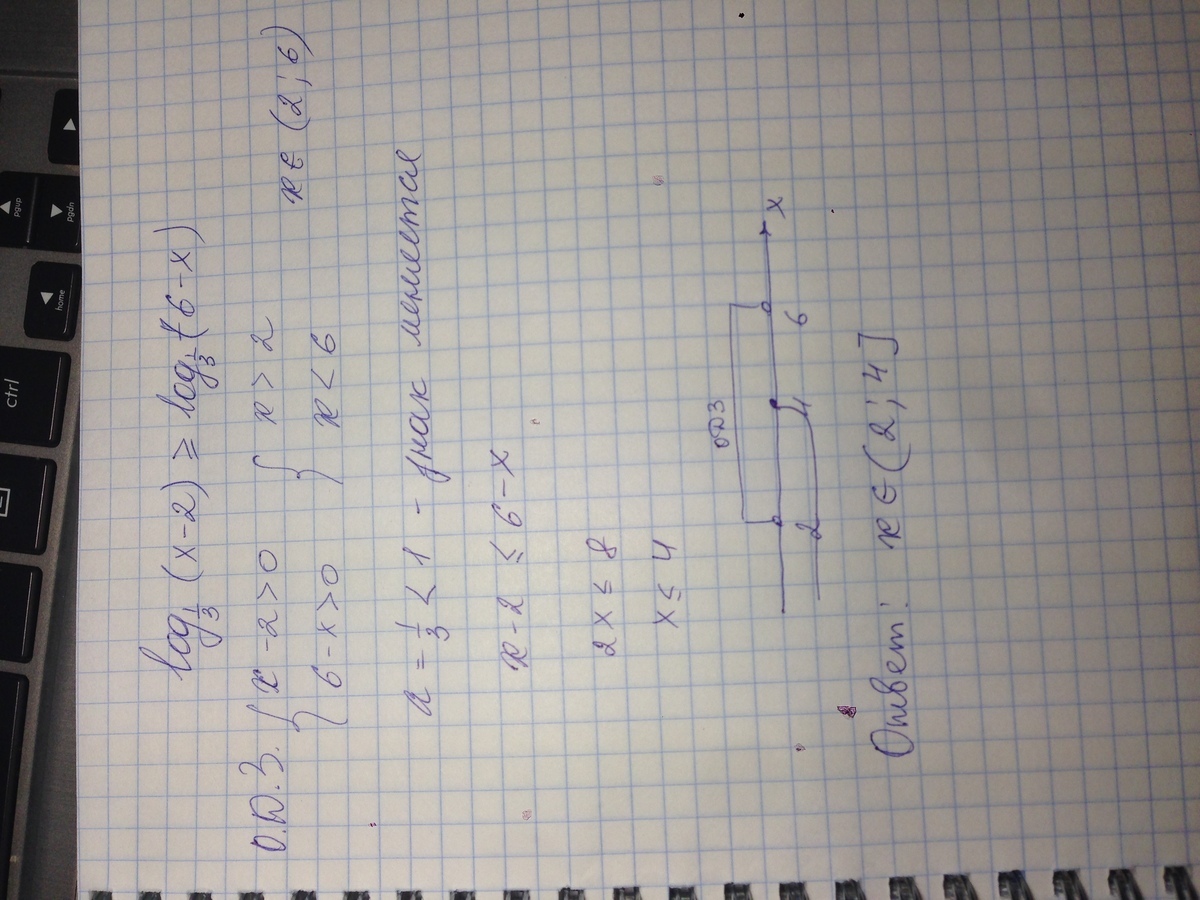 log_{1/3}(x-2) ≥ log_{1/3}(6-x)
О.Д.З. { x-2>0 { x>2
6-x>0 x<6 x∈(2;6)
a = 1/3 < 1 - знак меняется
x-2 ≤ 6-x
2x ≤ 8
x ≤ 4
ОДЗ
2 4 6 x
Ответ: x∈(2;4]
ctrl
home
pgup
pgdn